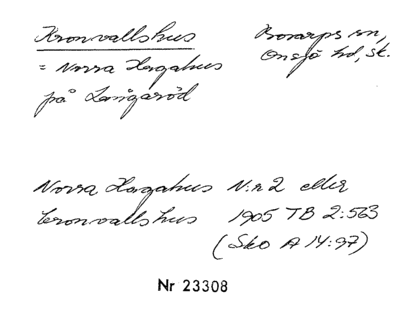 Kronvallshus
Bosarps sn,
Onsjö hd, sk.
= Norra Hagahus
på Långaröd
Norra Hagahus N:r 2 eller
Cronvallshus 1905 TB 2:563
(Sko A 14:97)
Nr 23308